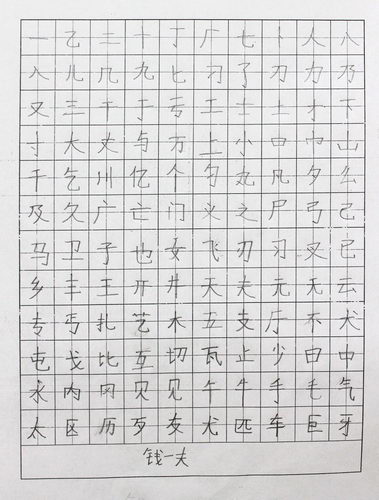 一乙二十丁厂七卜人八
入儿几九匕刁了刀力乃
又三干于亏工士土才下
寸大丈与万上小口巾山
千乞川亿个勺丸凡夕么
及久广亡门义之尸弓己
马卫子也女飞刃习叉已
乡丰王开井天夫元无云
专丐扎艺木五支厅不犬
屯戈比互切瓦止少曰中
水内冈贝见午牛手毛气
太区历歹友尤匹车巨牙
钱一夫